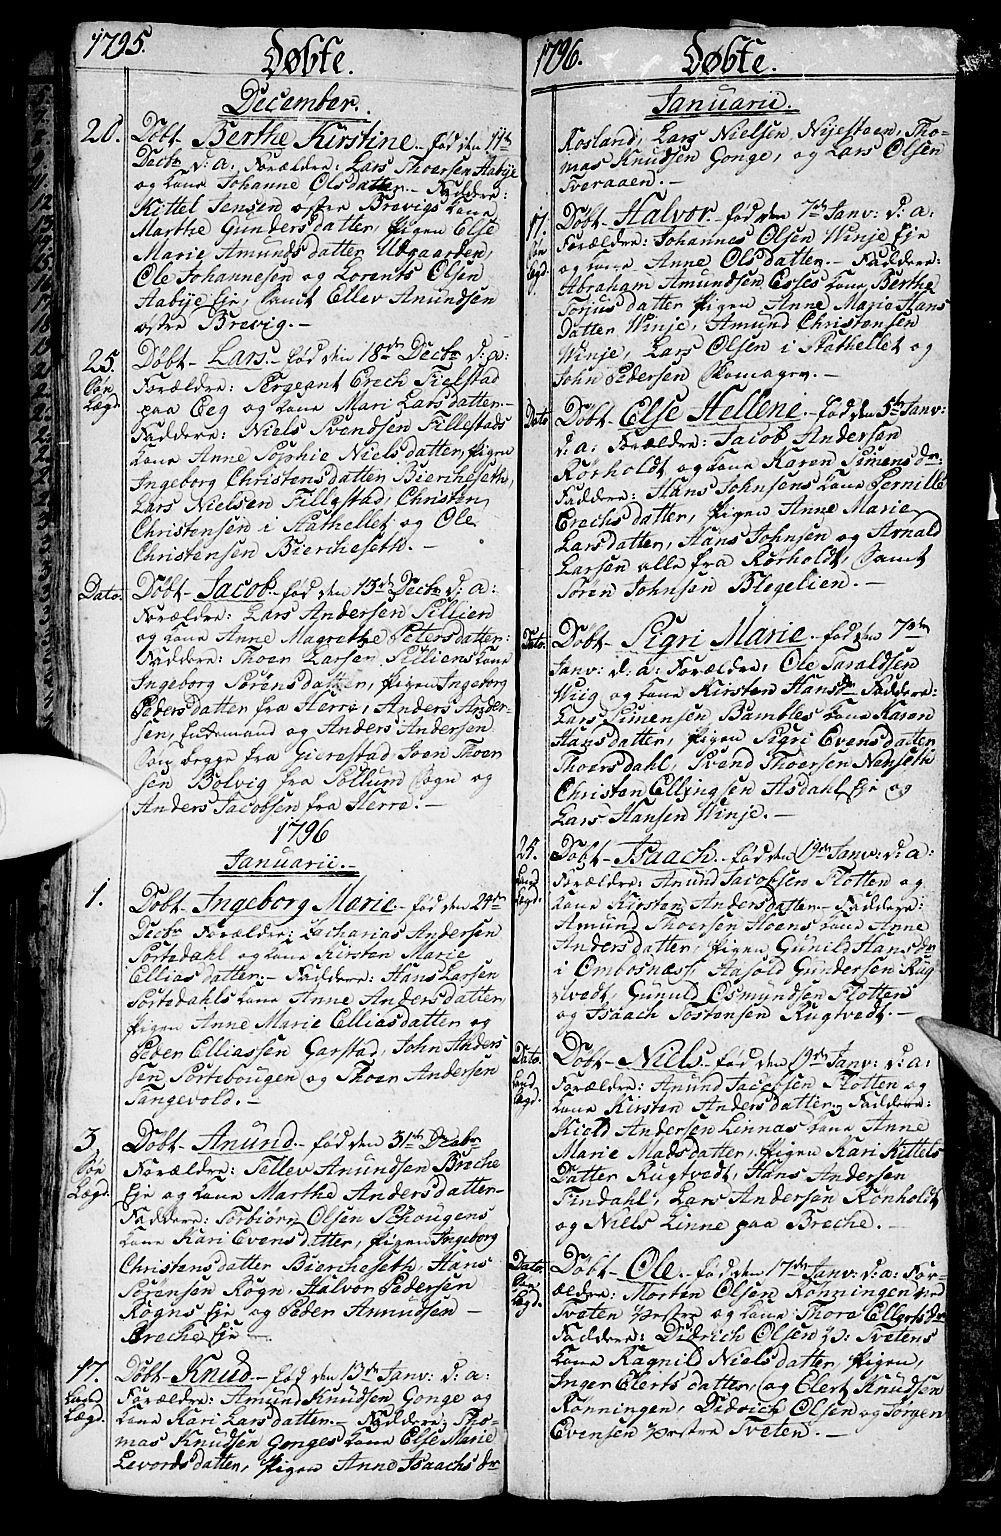 1795.
Døbte.
December.
20. Døbt Berthe Kirstine født den 11te
Decbr d: a: Forældre: Lars Thorsen Aabÿe
og kone Johanne Olsdatter Faddere:
Kittel Jensen østre Brevigs kone
Marthe Gundersdatter, Pigen Else
Marie Amundsdatter Udgaarden,
Ole Johannesen og Lorents Olsen
Aabÿe Eje, samt Ellev Anundsen
østre Brevig.
25. Døbt Lars født den 18de Decbr d: a:
Søe Forældre: Sergeant Erech Fielstad
Lægd. paa Eeg og kone Mari Larsdatter
Faddere: Niels Svendsen Fillestads
kone Anne Sophie Nielsdatter, Pigen
Ingeborg Christensdatter Biercheseth,
Lars Nielsen Fillestad, Christen
Christensen i Stathellet og Ole
Christensen Biercheseth.
Dato. Døbt Jacob født den 13de Decbr d: a:
Forældre: Lars Andersen Sillien
og kone Anne Magrethe Petersdatter:
Faddere: Thoer Larsen Silliens kone
Ingeborg Sørensdatter, Pigen Ingeborg
Pedersdatter fra Herre, Anders Ander-
sen, og Anders Andersen
begge fra Gierestad, Sven Thoer
sen Bolvig fra Sollum Sogn og
Anders Jacobsen fra Herre.
1796
Januarii.
1. Døbt Ingeborg Marie født den 24de
Decbr Forældre: Zacharias Andersen
Tortedahl og kone Kirsten Marie
Elliasdatter Faddere: Hans Larsen
Tortedahls kone Anne Andersdatter,
Pigen Anne Marie Elliasdatter og
Peder Elliassen Garstad, John Anders
sen Tortebougen og Thoer Andersen
Tangevold.
3. Døbt Anund født den 31te Decbr
Søe Forældre: Tellev Anundsen Breche
Lægd. Eje og kone Marthe Andersdatter
Faddere: Torbiørn Olsen Schougens
kone Kari Evensdatter, Pigen Ingeborg
Christensdatter Biercheseth, Hans
Sørensen Rogn, Halvor Pedersen
Rogns Eje og Peder Anundsen
Breche Eje
17. Døbt Knud født den 13de Janv: d: a:
Land Forældre: Amund Knudsen Gonge og
Lægd. kone Kari Larsdatter Faddere: Tho-
mas Knudsen Gonges kone Else Marie
Levordsdatter, Pigen Anne Isaachs dr
1796.
Døbte.
Januarii.
Rosland, Lars Nielsen Nÿestoen, Tho-
mas Knudsen Gonge, og Lars Olsen
Tveraaen.
17. Døbt Halvor født den 7de Janv: d: a:
Søe Forældre: Johannes Olsen Winje Eje
Lægd og kone Anne Olsdatter. Faddere:
Abraham Amundsen Esses kone Berthe
Torjusdatter Pigen Anne Maria Hans
datter Winje, Amund Christensen
Winje, Lars Olsen i Stathellet og
John Pedersen
Dato Døbt Else Hellene født den 5te Janv:
d: a: Forældre: Jacob Andersen
Rørholdt og kone Karen Simens dr:
Faddere: Hans Johnsens kone Pernille
Erechsdatter, Pigen Anne Marie
Larsdatter, Hans Johnsen og Arnold
Larsen alle fra Rørholdt, samt
Søren Johnsen Blegelien.
Dato. Døbt Sigri Marie født den 7de
Janv: d: a: Forældre: Ole Taraldsen
Wiig og kone Kirsten Hansdr Faddere:
Lars Simensen Bambles kone Karen
Hansdatter, Pigen Sigri Evensdatter
Thoersdahl, Svend Thoersen Nenseth
Christen Ellingsen Asdahl Eje og
Lars Hansen Winje.
25. Døbt Isaach født den 19de Janv: d: a:
Land Forældre: Anund Jacobsen Flotten og
Lægd. kone Kirsten Andersdatter Faddere:
Amund Thoersen Hoens kone Anne
Andersdatter, Pigen Gunild Hans dr
i Ombosnæss, Aasold Gundersen Rug
tvedt, Gunuld Osmundsen Flotten
og Isaach Tostensen Rugtvedt.
Dato. Døbt Niels født den 19de Janv: d: a:
Land Forældre: Anund Jacobsen Flotten og
Lægd. kone Kirsten Andersdatter Faddere:
Kield Andersen Linnas kone Anne
Marie Madsdatter, Pigen Kari Kittels
datter Rugtvedt, Hans Andersen
Findahl, Lars Andersen Ronholdt
og Niels Linne paa Breche.
Dato Døbt Ole født den 17de Janv: d: a: For-
Søe ældre: Morten Olsen Ronningen ved
Lægd. Tveten og kone Thora Ellertsdr
Faddere: Didrich Olsen Tvetens
kone Ragnild Nielsdatter, Pigen,
Inger Elertsdatter, og Elert Knudsen
Ronningen, Didrich Olsen og Jørgen
Evensen Tveten.